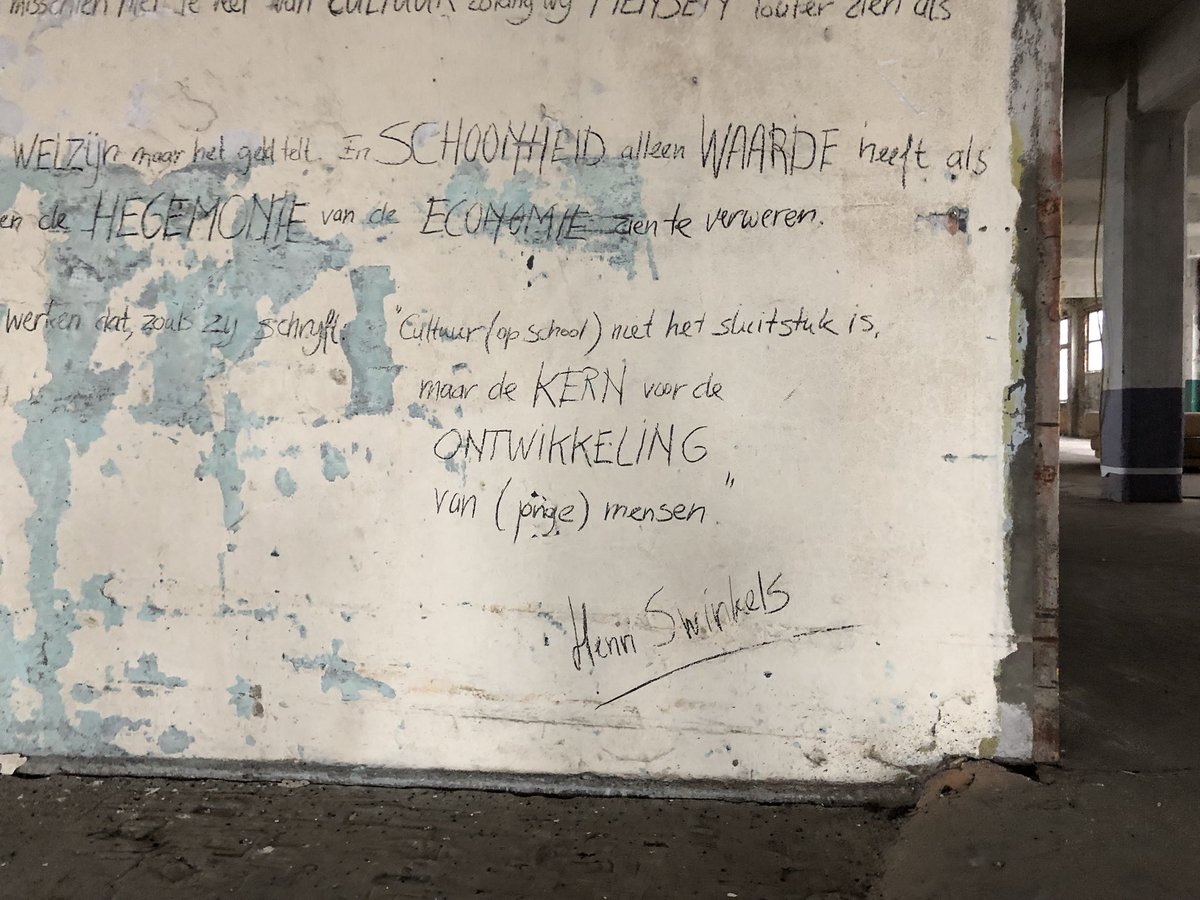 misschien niet de kei van CULTUUR zolang wij MENSEN louter zien als
WELZIJN maar het geld telt. En SCHOONHEID alleen WAARDE heeft als
en de HEGEMONIE van de ECONOMIE zien te verweren.
werken dat, zoals zij schrijft: "Cultuur (op school) niet het sluitstuk is,
maar de KERN voor de
ONTWIKKELING
van (jonge) mensen"
Henri Swinkels